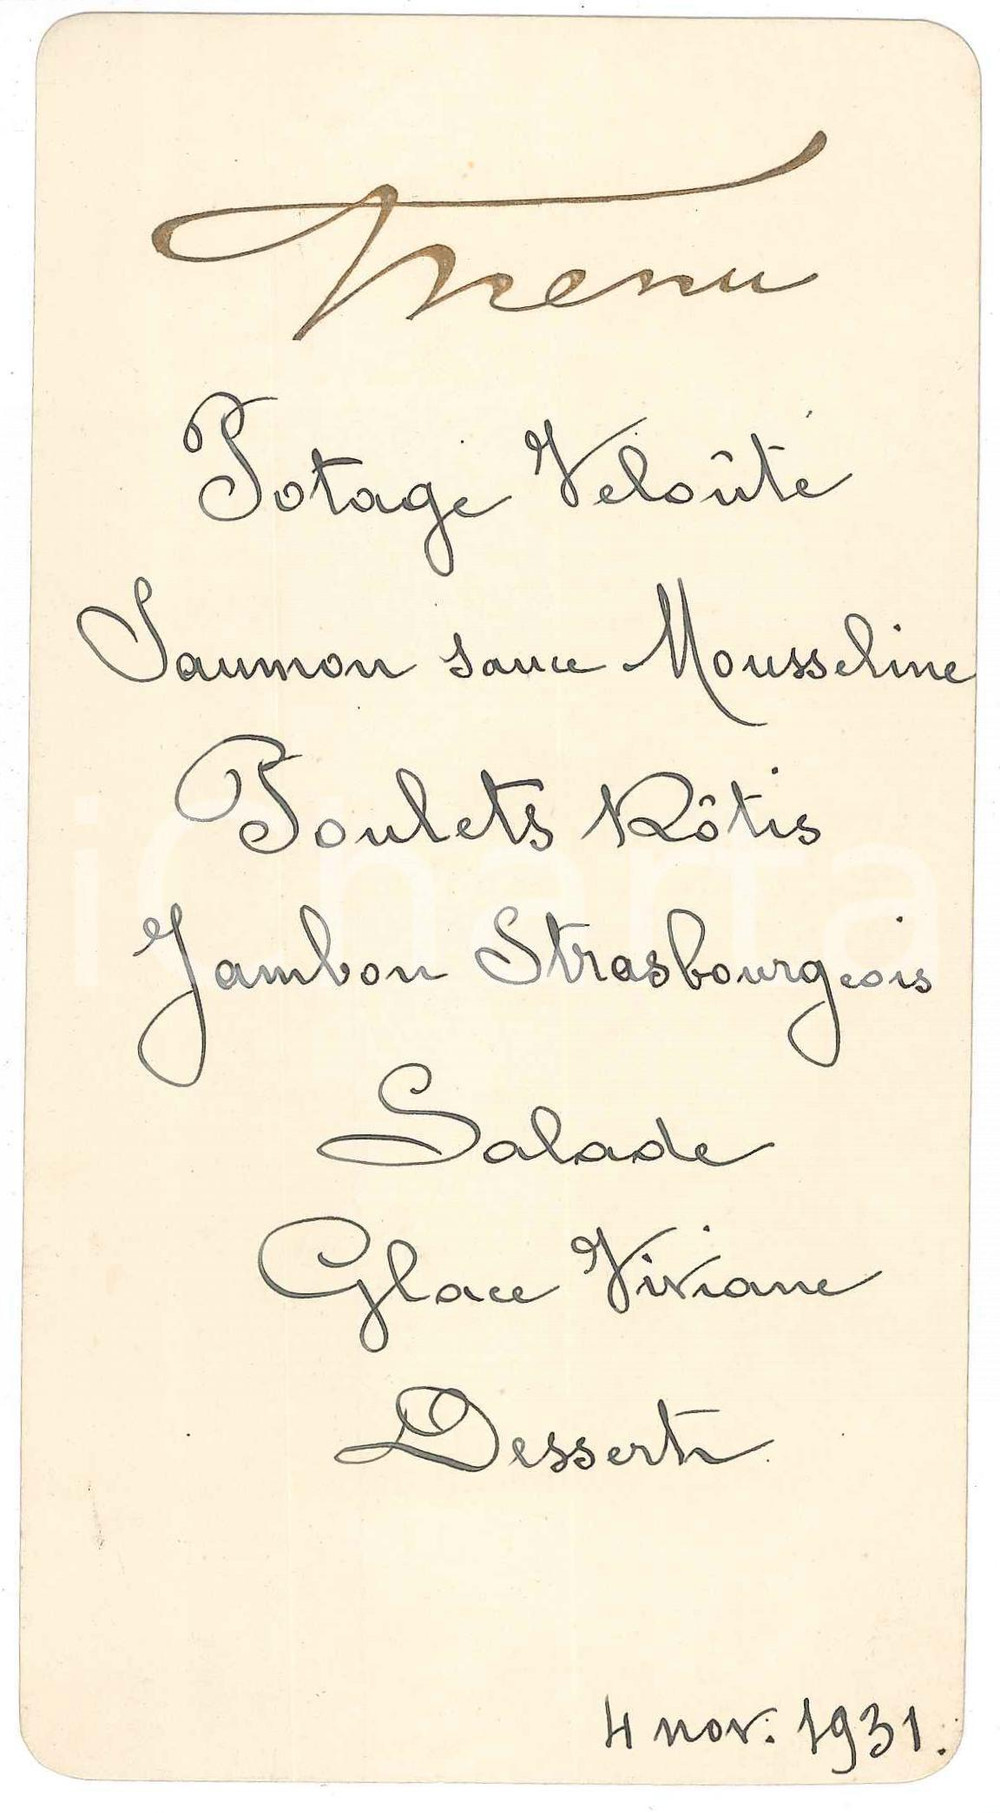 Menu
Potage Veloûté
Saumon sauce Mousseline
Poulets Rôtis
Jambon Strasbourgeois
Salade
Glace Viviane
Dessert
4 nov. 1931.